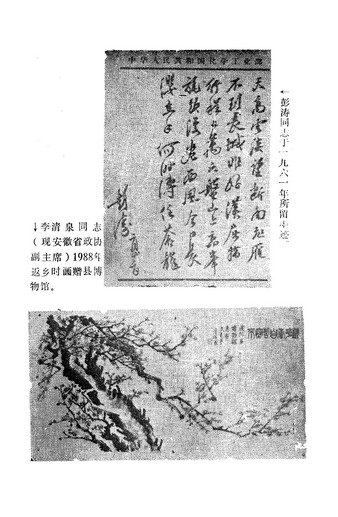 中华人民共和国化学工业部
天高云淡望断南飞雁
不到长城非好汉屈指
行程二万六盘山上高峰
旄头漫卷西风今日长
缨在手何时缚住苍龙
彭涛
←彭涛同志于一九六一年所留手迹
↓李清泉同志
(现安徽省政协
副主席)1988年
返乡时画赠县博
物馆。